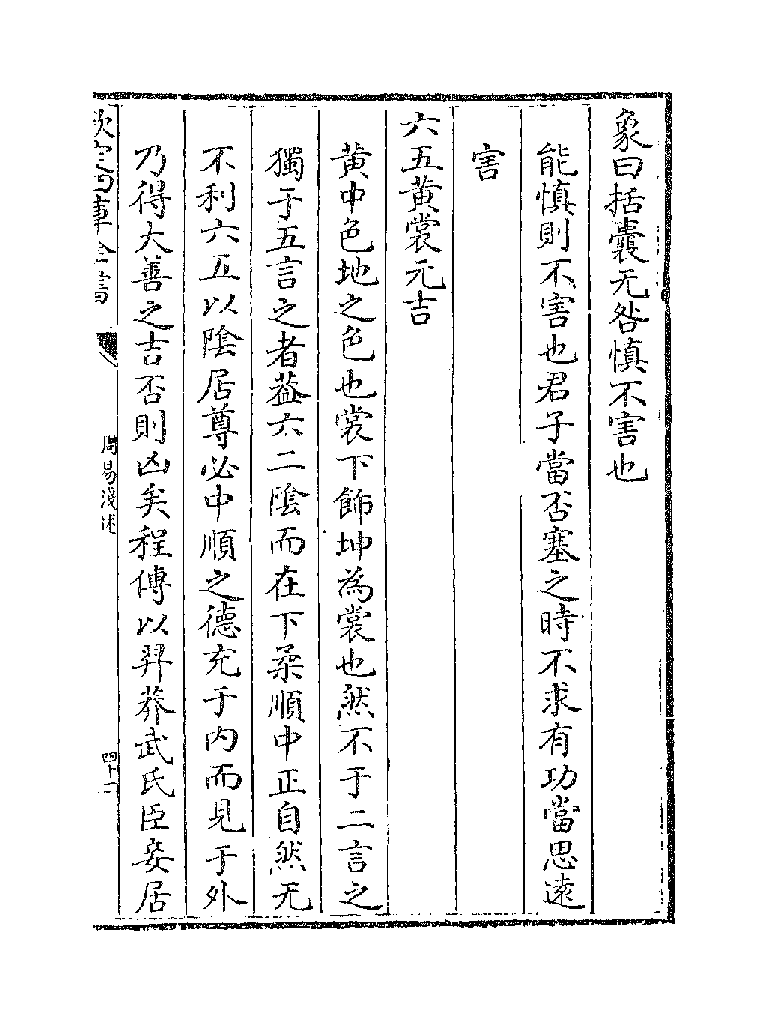 象曰括囊无咎慎不害也
能慎則不害也君子當否塞之時不求有功當思遠
害
六五黃裳元吉
黃中色地之色也裳下飾坤為裳也然不于二言之
獨于五言之者葢六二陰而在下柔順中正自然无
不利六五以陰居尊必中順之德充于内而見于外
乃得大善之吉否則凶矣程傳以羿莽武氏臣妾居
欽定四庫全書
周易淺述
四十二